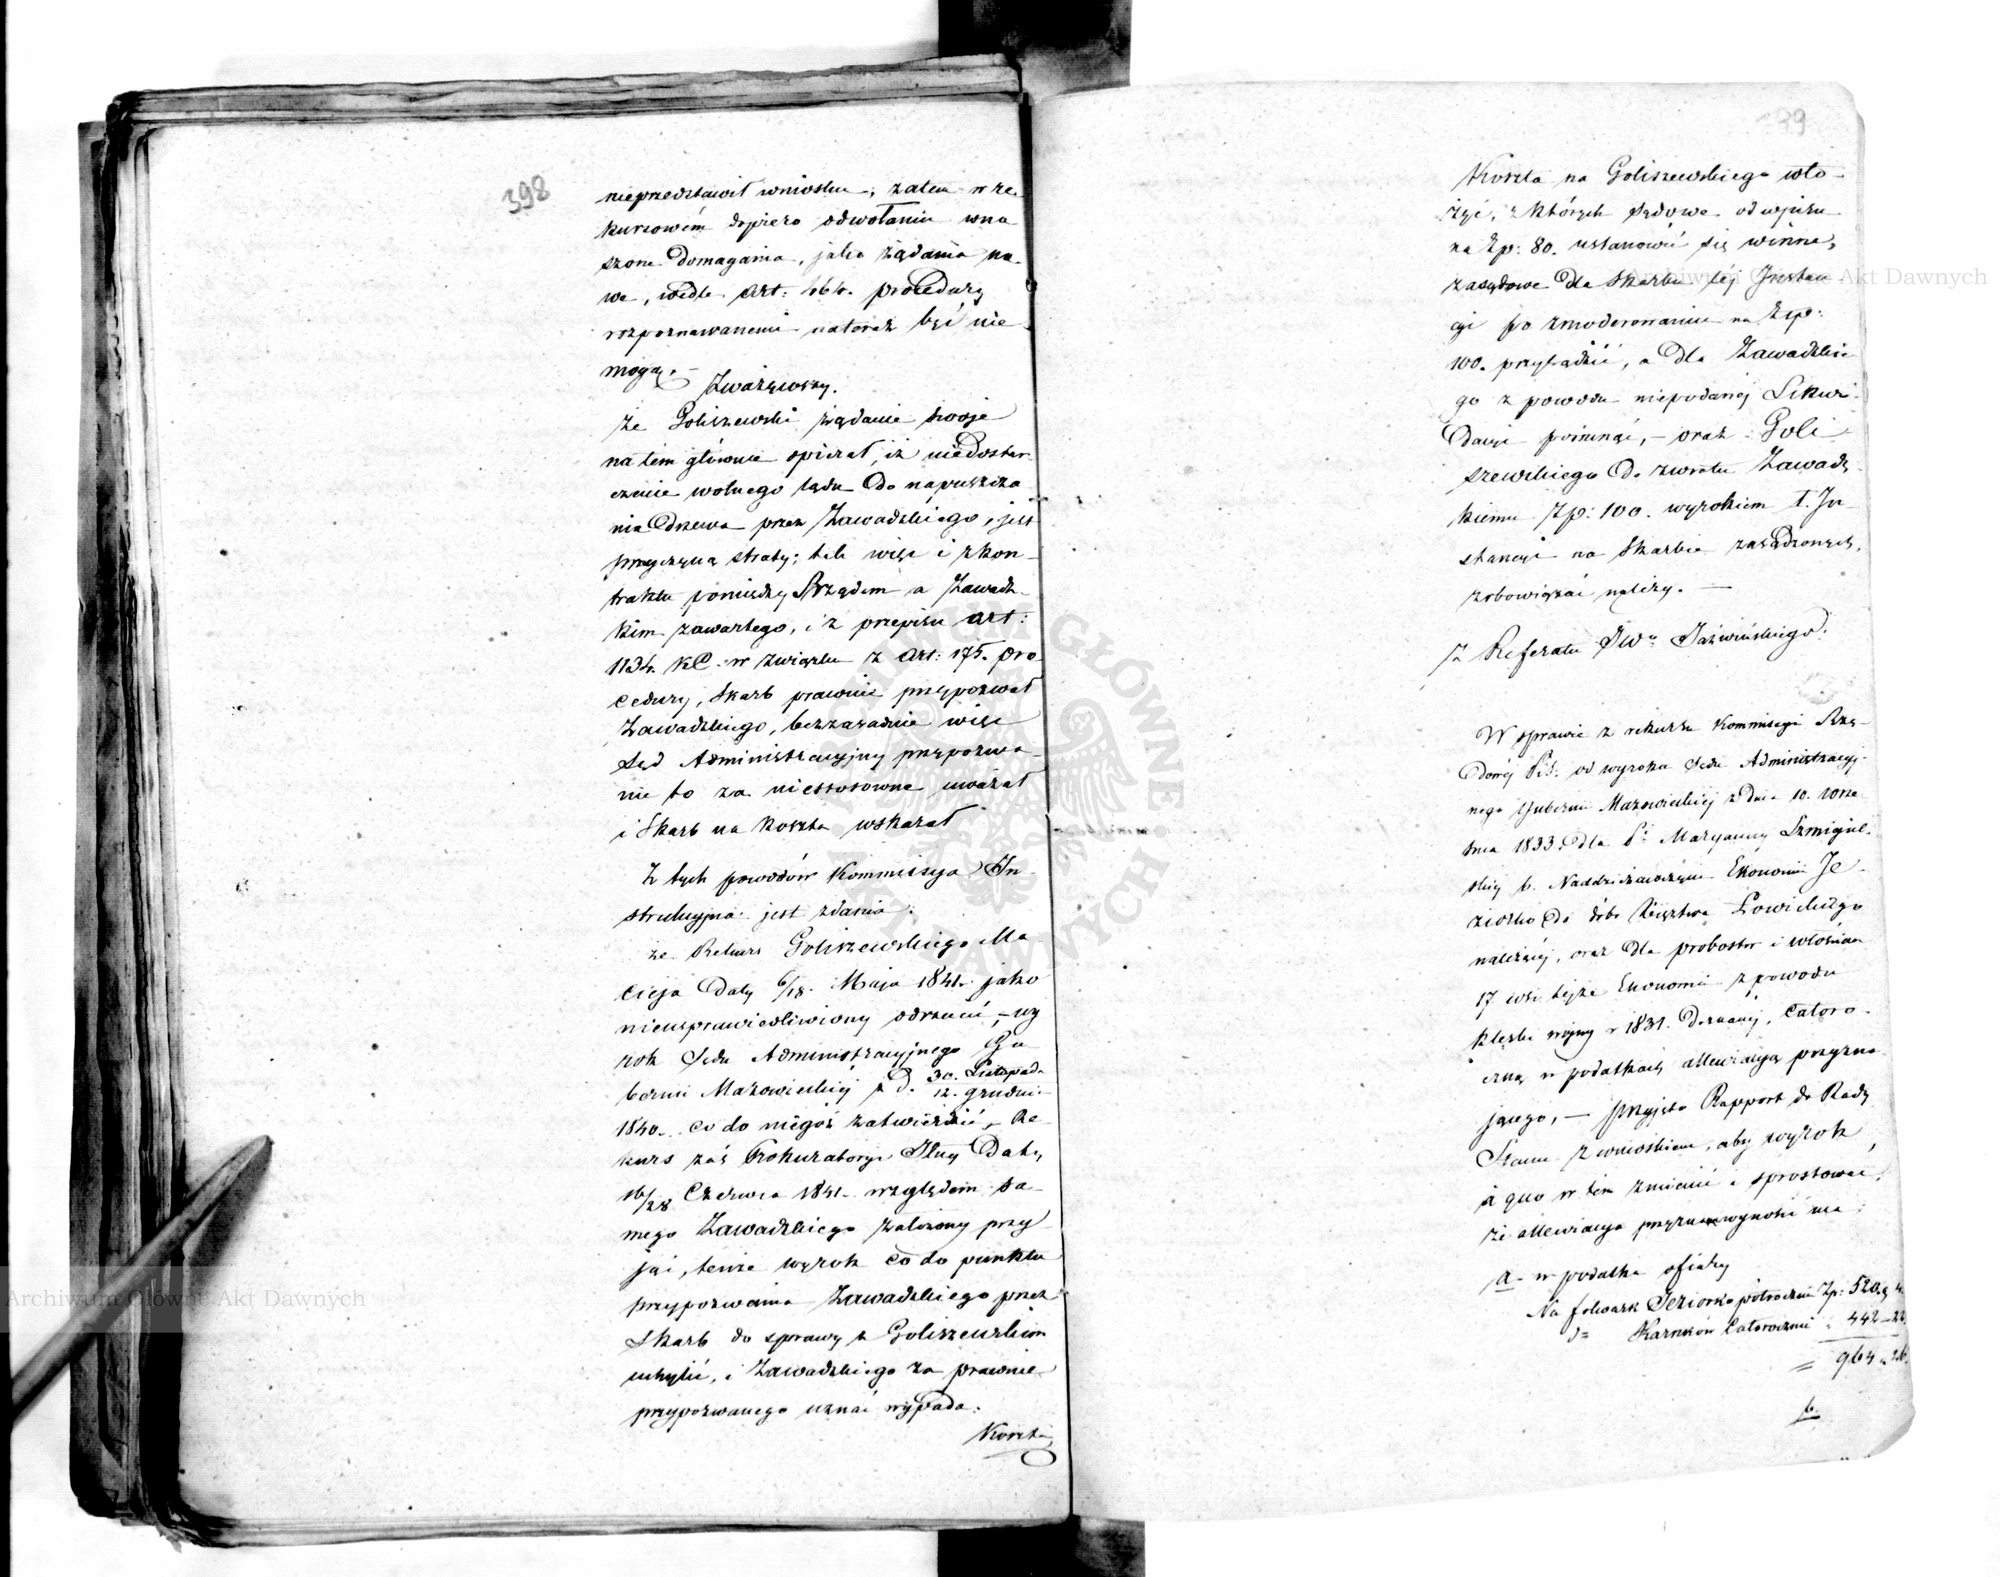 398
nieprzedstawił wniosku, zatem w re-
kursowém dopiero odwołaniu wno
szone domagania, jako żądania no-
we, wedle art: 464. procedury
rozpoznawanemi natoraz być nie
mogą. –
Zważywszy.
że Goliszewski żądanie swoje
na tém głównie opierał, iż niedostar-
czenie wolnego lądu do napuszcza
nia drzewa przez Zawadzkiego, jest
przyczyną straty; tak więc i z kon-
traktu pomiędzy Rządem a Zawadz-
kim zawartego, i z przepisu art:
1134. KC. w związku z art: 175. pro
cedury, Skarb prawnie przypozwał
Zawadzkiego, bezzasadnie więc
Sąd Administracyjny przypozwa-
nie to za niestosowne uważał
i Skarb na koszta wskazał
Z tych powodów Kommissya In-
strukcyjna jest zdania:
że Rekurs Goliszewskiego Ma-
cieja daty 6/18. Maja 1841. jako
nieusprawiedliwiony odrzucić, – wy
rok Sądu Administracyjnego Gu
bernii Mazowieckiéj z d. 30. Listopada
12. Grudnia
1840. co do niegoż zatwierdzić, – Re
kurs zaś Prokuratoryi Jlnéj daty
16/28 Czerwca 1841. względem sa-
mego Zawadzkiego założony przy
jąć, tenże wyrok co do punktu
przypozwania Zawadzkiego przez
Skarb do sprawy z Goliszewskim
uchylić, i Zawadzkiego za prawnie
przypozwanego uznać wypada.
Koszta
399
Koszta na Goliszewskiego wło-
żyć, z których sądowe od wpisu
na Zp: 80. ustanowić się winne,
zasądowe dla Skarbu téj Instan-
cyi po zmoderowaniu na Złp:
100. przysądzić, a dla Zawadzkie
go z powodu niepodanéj Likwi-
dacyi pominąć, – oraz Goli
szewskiego do zwrotu Zawadz-
kiemu Zp: 100. wyrokiem I. In
stancyi na Skarbie zasądzonych,
zobowiązać należy. –
Z Referatu JWo Jaźwińskiego.
W sprawie z rekursu Kommissyi Rzą-
dowéj P.iS. od wyroku Sądu Administracyj-
nego Gubernii Mazowieckiéj z dnia 10. Wrze
śnia 1833. dla Pi Maryanny Szmigiel-
skiéj b. Naddzierżawczyni Ekonomii Je-
ziorko do dóbr Księztwa Łowickiego
należącéj, oraz dla probostw i włościan
17 wsi tejże Ekonomii z powodu
klęski wojny w 1831. doznanéj, całoro-
czną w podatkach allewiacyą przyzna
jącego, – przyjęto Rapport do Rady
Stanu z wnioskiem, aby wyrok
a quo w tém zmienić i sprostować,
że allewiacya przyznana wynosić ma:
a – w podatku ofiary
Na folwark Jeziorko półrocznie Zp: 520. g 4.
d= Karnków całorocznie " 442 – 22.
= 964 " 26.
b.
Archiwum Główne Akt Dawnych
Archiwum Główne Akt Dawnych
ARCHIWUM GŁÓWNE AKT DAWNYCH